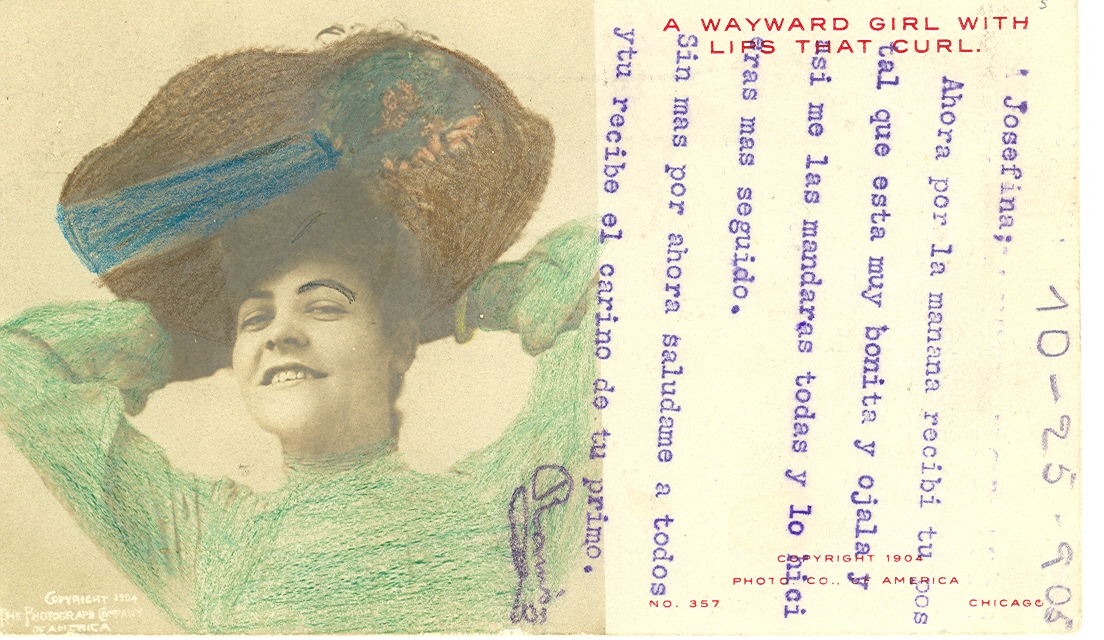 A WAYWARD GIRL WITH
LIPS THAT CURL.
10-25-905
Josefina;
Ahora por la manana recibi tu pos
tal que esta muy bonita y ojala y
asi me las mandaras todas y lo hici
eras mas seguido.
Sin mas por ahora saludame a todos
ytu recibe el carino de tu primo.
COPYRIGHT 1904
PHOTO. CO., OF AMERICA
NO. 357
CHICAGO
COPYRIGHT 1904
THE PHOTOGRAPH COMPANY
OF AMERICA